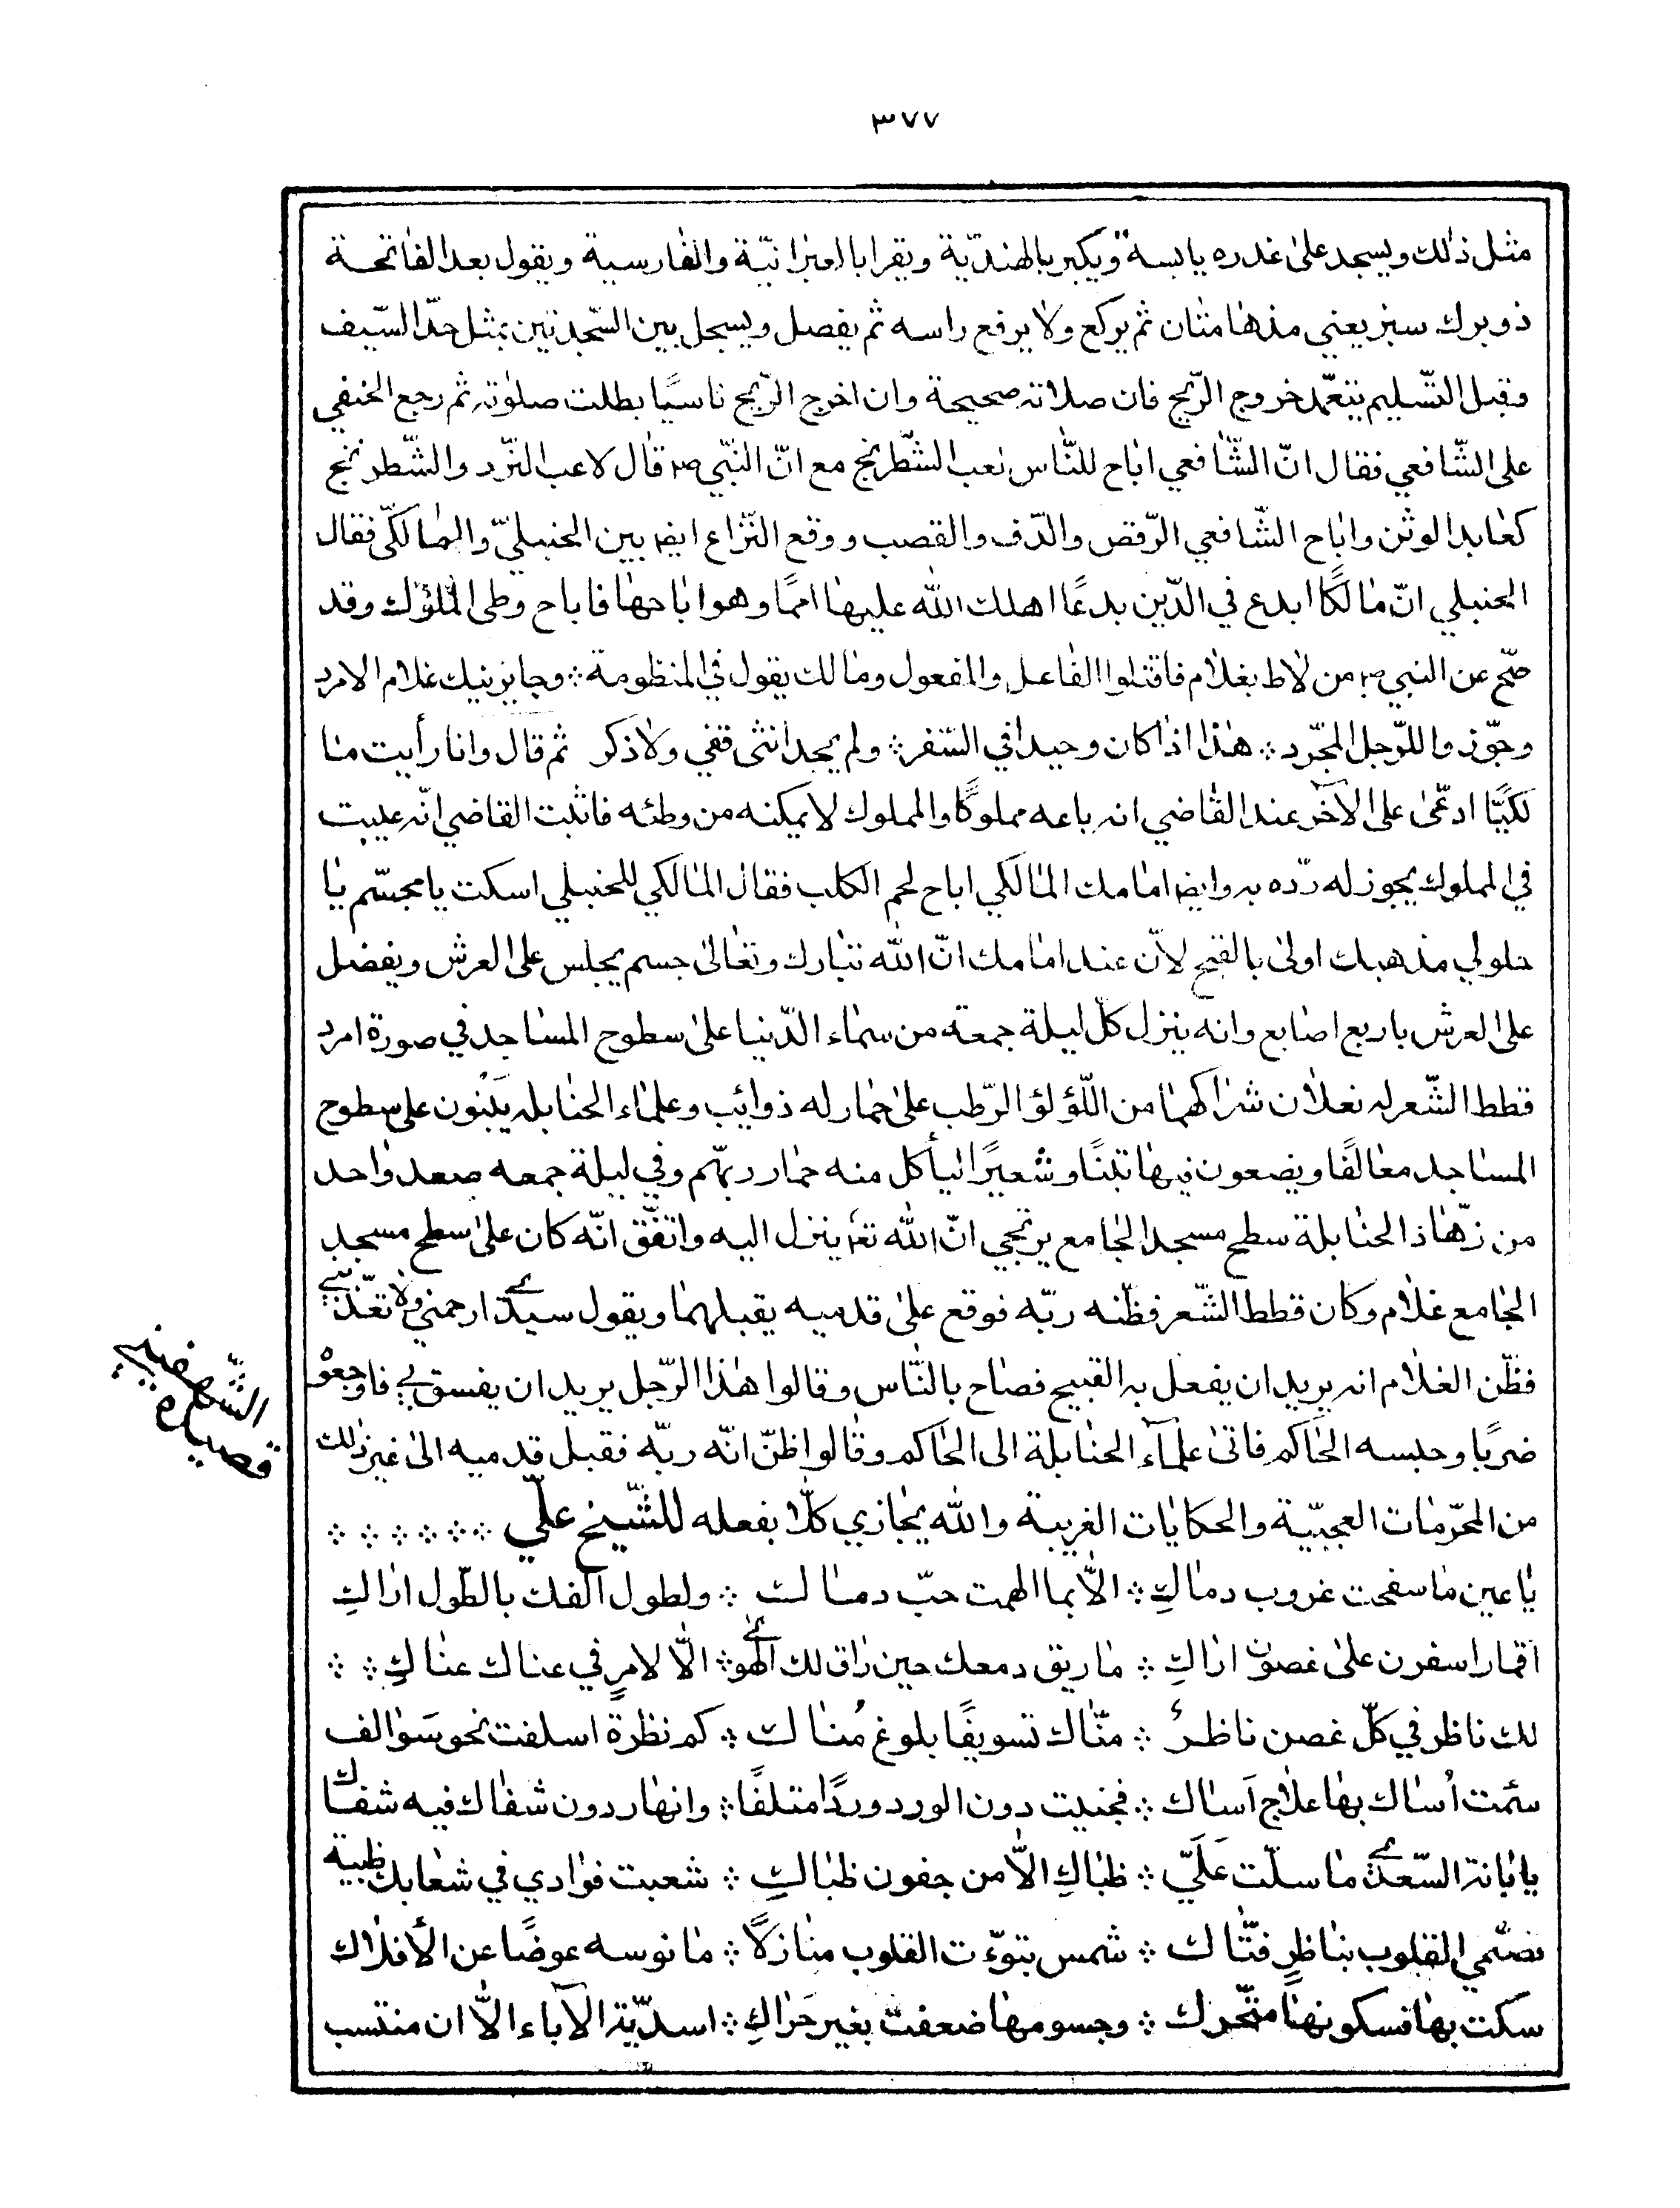 ٣٧٧
مثل ذلك ويسجد على غدره يابسة ويكبر بالهنديّة ويقرا بالعبرانيّة والفارسية ويقول بعد الفاتحة
دو برك سبز يعني مدهامتان ثم يركع ولا يرفع راسه ثم يفصل ويسجل بين السّجدتين بمثل حدّ السّيف
وقبل التّسليم يتعمّد خروج الرّيح فان صلاته صحيحة وان اخرج الرّيح ناسيًا بطلت صلوته ثم رجع الحنفي
على الشّافعي فقال انّ الشّافعي اباح للنّاس لعب الشّطرنج مع انّ النّبي ص قال لاعب النّرد والشّطرنج
كعابد الوثن واباح الشّافعي الرّقص والدّف والقصب ووقع النّزاع ايض بين الحنبليّ والمالكيّ فقال
الحنبلي انّ مالكًا ابدع في الدّين بدعًا اهلك الله عليها اممًا وهو اباحها فاباح وطى المملوك وقد
صّح عن النبي ص من لاط بغلام فاقتلوا الفاعل والمفعول ومالك يقول في المنظومة ؞ وجايز نيك غلام الامرد
وجوّزوا للرّجل المجّرد ؞ هذا اذا كان وحيدا في السّفر ؞ ولم يجد انثى تفي ولا ذكر ثم قال وانا رأيت ما
لكيًّا ادعّى على الآخر عند القاضي انه باعه مملوكًا والمملوك لا يمكنه من وطئه فاثبت القاضي انّه عيب
في المملوك يجوز له ردّه به وايض امامك المالكي اباح لحم الكلب فقال المالكي للحنبلي اسكت يا مجسّم يا
حلولي مذهبك اولى بالقبح لانّ عند امامك انّ الله تبارك وتعالى جسم يجلس على العرش ويفضل
على العرش باربع اصابع وانه ينزل كلّ ليلة جمعة من سماء الدّنيا على سطوح المساجد في صورة امرد
قطط الشّعر له نعلان شراكهما من اللّؤلؤ الرّطب على حمار له ذوائب وعلماء الحنابله يبنون على سطوح
المساجد معالفًا ويضعون فيها تبنًا وشعيرًا ليأكل منه حمار ربّهم وفي ليلة جمعه صعد واحد
من زهّاد الحنابلة سطح مسجد الجامع يرتجي انّ الله تع ينزل اليه واتفّق انّه كان على سطح مسجد
الجامع غلام وكان قطط الشّعر فظّنه ربّه فوقع على قدميه يقبلهما ويقول سيدي ارحمني ولا تعذّبني
فظّن الغلام انه يريد ان يفعل به القبيح فصاح بالنّاس وقالوا هذا الرّجل يريد ان يفسق بي فاوجعوه
ضربًا وحبسه الحاكم فاتى علماء الحنابلة الى الحاكم وقالوا ظنّ انّه ربّه فقبل قدميه الى غير ذلك
من المحرّمات العجيّبة والحكايات الغريبة والله يجازي كلّا بفعله للشّيخ علّي ؞ ؞ ؞ ؞ ؞ ؞
الشّهفيني
قصيدة
يا عين ما سفحت غروب دماكِ ؞ الّا بما الهمت حبّ دماك ؞ ولطول الفك بالطّول اراكِ
اقمار اسفرن على غصون اراكِ ؞ ما ريق دمعك حين راق لك الهوى ؞ الّا لامرٍ في عناك عناكِ ؞ ؞
لك ناظر في كلّ غصن ناظر ؞ منّاك تسويفًا بلوغ مُناك ؞ كم نظرة اسلفت نحو سَوالف
سئمت اُساك بها علاج اَساك ؞ فجنيت دون الورد وردًا متلفًا ؞ وانهار دون شفاك فيه شفاك
يا بانة السّعدي ما سلّت عَلَيّ ؞ ظباكِ الّا من جفون ظباكِ ؞ شعبت فوادي في شعابك ظبية
تصمي القلوب بناظرٍ فتّاك ؞ شمس تبوّءت القلوب منازلًا ؞ مانوسه عوضًا عن الأفلاك
سكنت بها فسكونها متحّرك ؞ وجسومها ضعفت بغير حَراكِ ؞ اسديّة الآباء الّا ان منتسب